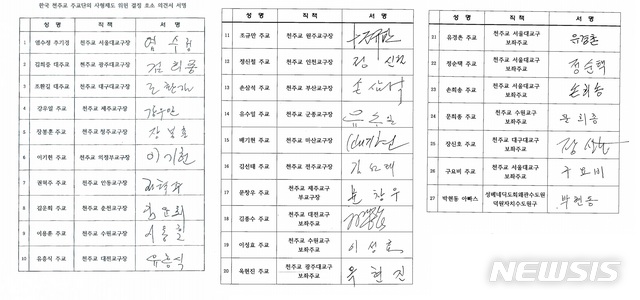 한국 천주교 주교단의 사형제도 위헌 결정 호소 의견서 서명
성 명 직 책 서 명
1 염수정 추기경 천주교 서울대교구장 염수정
2 김희중 대주교 천주교 광주대교구장 김희중
3 조환길 대주교 천주교 대구대교구장 조환길
4 강우일 주교 천주교 제주교구장 강우일
5 장봉훈 주교 천주교 청주교구장 장봉훈
6 이기헌 주교 천주교 의정부교구장 이기헌
7 권혁주 주교 천주교 안동교구장
8 김운회 주교 천주교 춘천교구장 김운회
9 이용훈 주교 천주교 수원교구장 이용훈
10 유흥식 주교 천주교 대전교구장 유흥식
성 명 직 책 서 명
11 조규만 주교 천주교 원주교구장
12 정신철 주교 천주교 인천교구장 정신철
13 손삼석 주교 천주교 부산교구장 손삼석
14 유수일 주교 천주교 군종교구장 유수일
15 배기현 주교 천주교 마산교구장
16 김선태 주교 천주교 전주교구장 김선태
17 문창우 주교 천주교 제주교구
부교구장 문창우
18 김종수 주교 천주교 대전교구
보좌주교
19 이성효 주교 천주교 수원교구
보좌주교 이성효
20 옥현진 주교 천주교 광주대교구
보좌주교 옥현진
성 명 직 책 서 명
21 유경촌 주교 천주교 서울대교구
보좌주교 유경촌
22 정순택 주교 천주교 서울대교구
보좌주교 정순택
23 손희송 주교 천주교 서울대교구
보좌주교 손희송
24 문희종 주교 천주교 수원교구
보좌주교 문희종
25 장신호 주교 천주교 대구대교구
보좌주교 장신호
26 구요비 주교 천주교 서울대교구
보좌주교 구요비
27 박현동 아빠스 성베네딕도회왜관수도원
덕원자치수도원구 박현동
NEWSIS